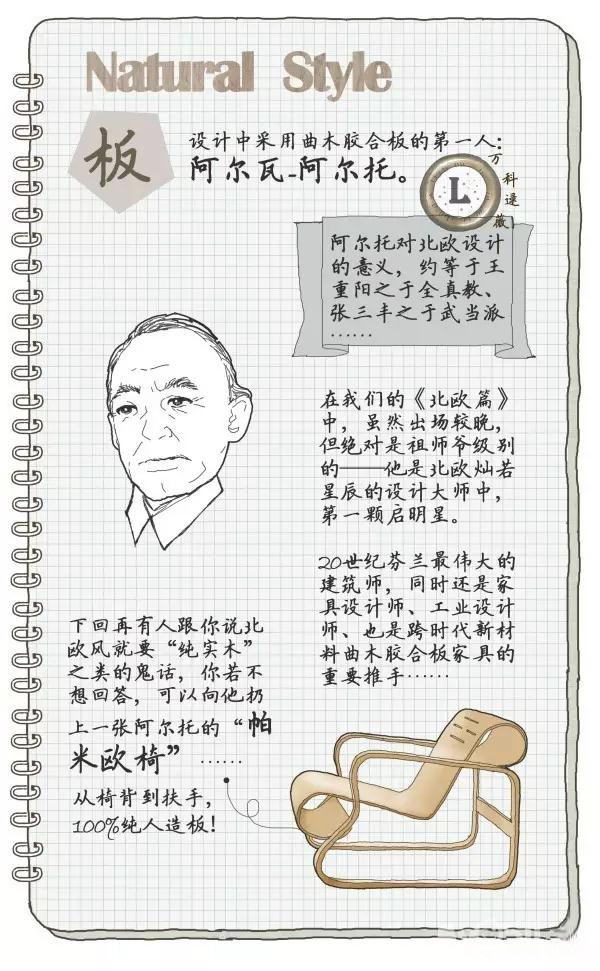 Natural Style
板
设计中采用曲木胶合板的第一人:
阿尔瓦-阿尔托。
L
万
科
逯
薇
阿尔托对北欧设计
的意义，约等于王
重阳之于全真教、
张三丰之于武当派
……
在我们的《北欧篇》
中，虽然出场较晚，
但绝对是祖师爷级别
的——他是北欧灿若
星辰的设计大师中，
第一颗启明星。
20世纪芬兰最伟大的
建筑师，同时还是家
具设计师、工业设计
师、也是跨时代新材
料曲木胶合板家具的
重要推手……
下回再有人跟你说北
欧风就要“纯实木”
之类的鬼话，你若不
想回答，可以向他扔
上一张阿尔托的“帕
米欧椅”……
从椅背到扶手，
100%纯人造板！